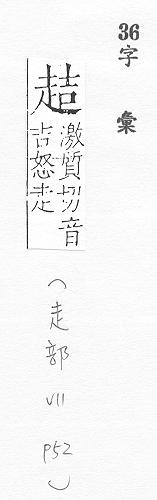 36字彙
趌
激質切音
吉怒走
（走部 VII P52）